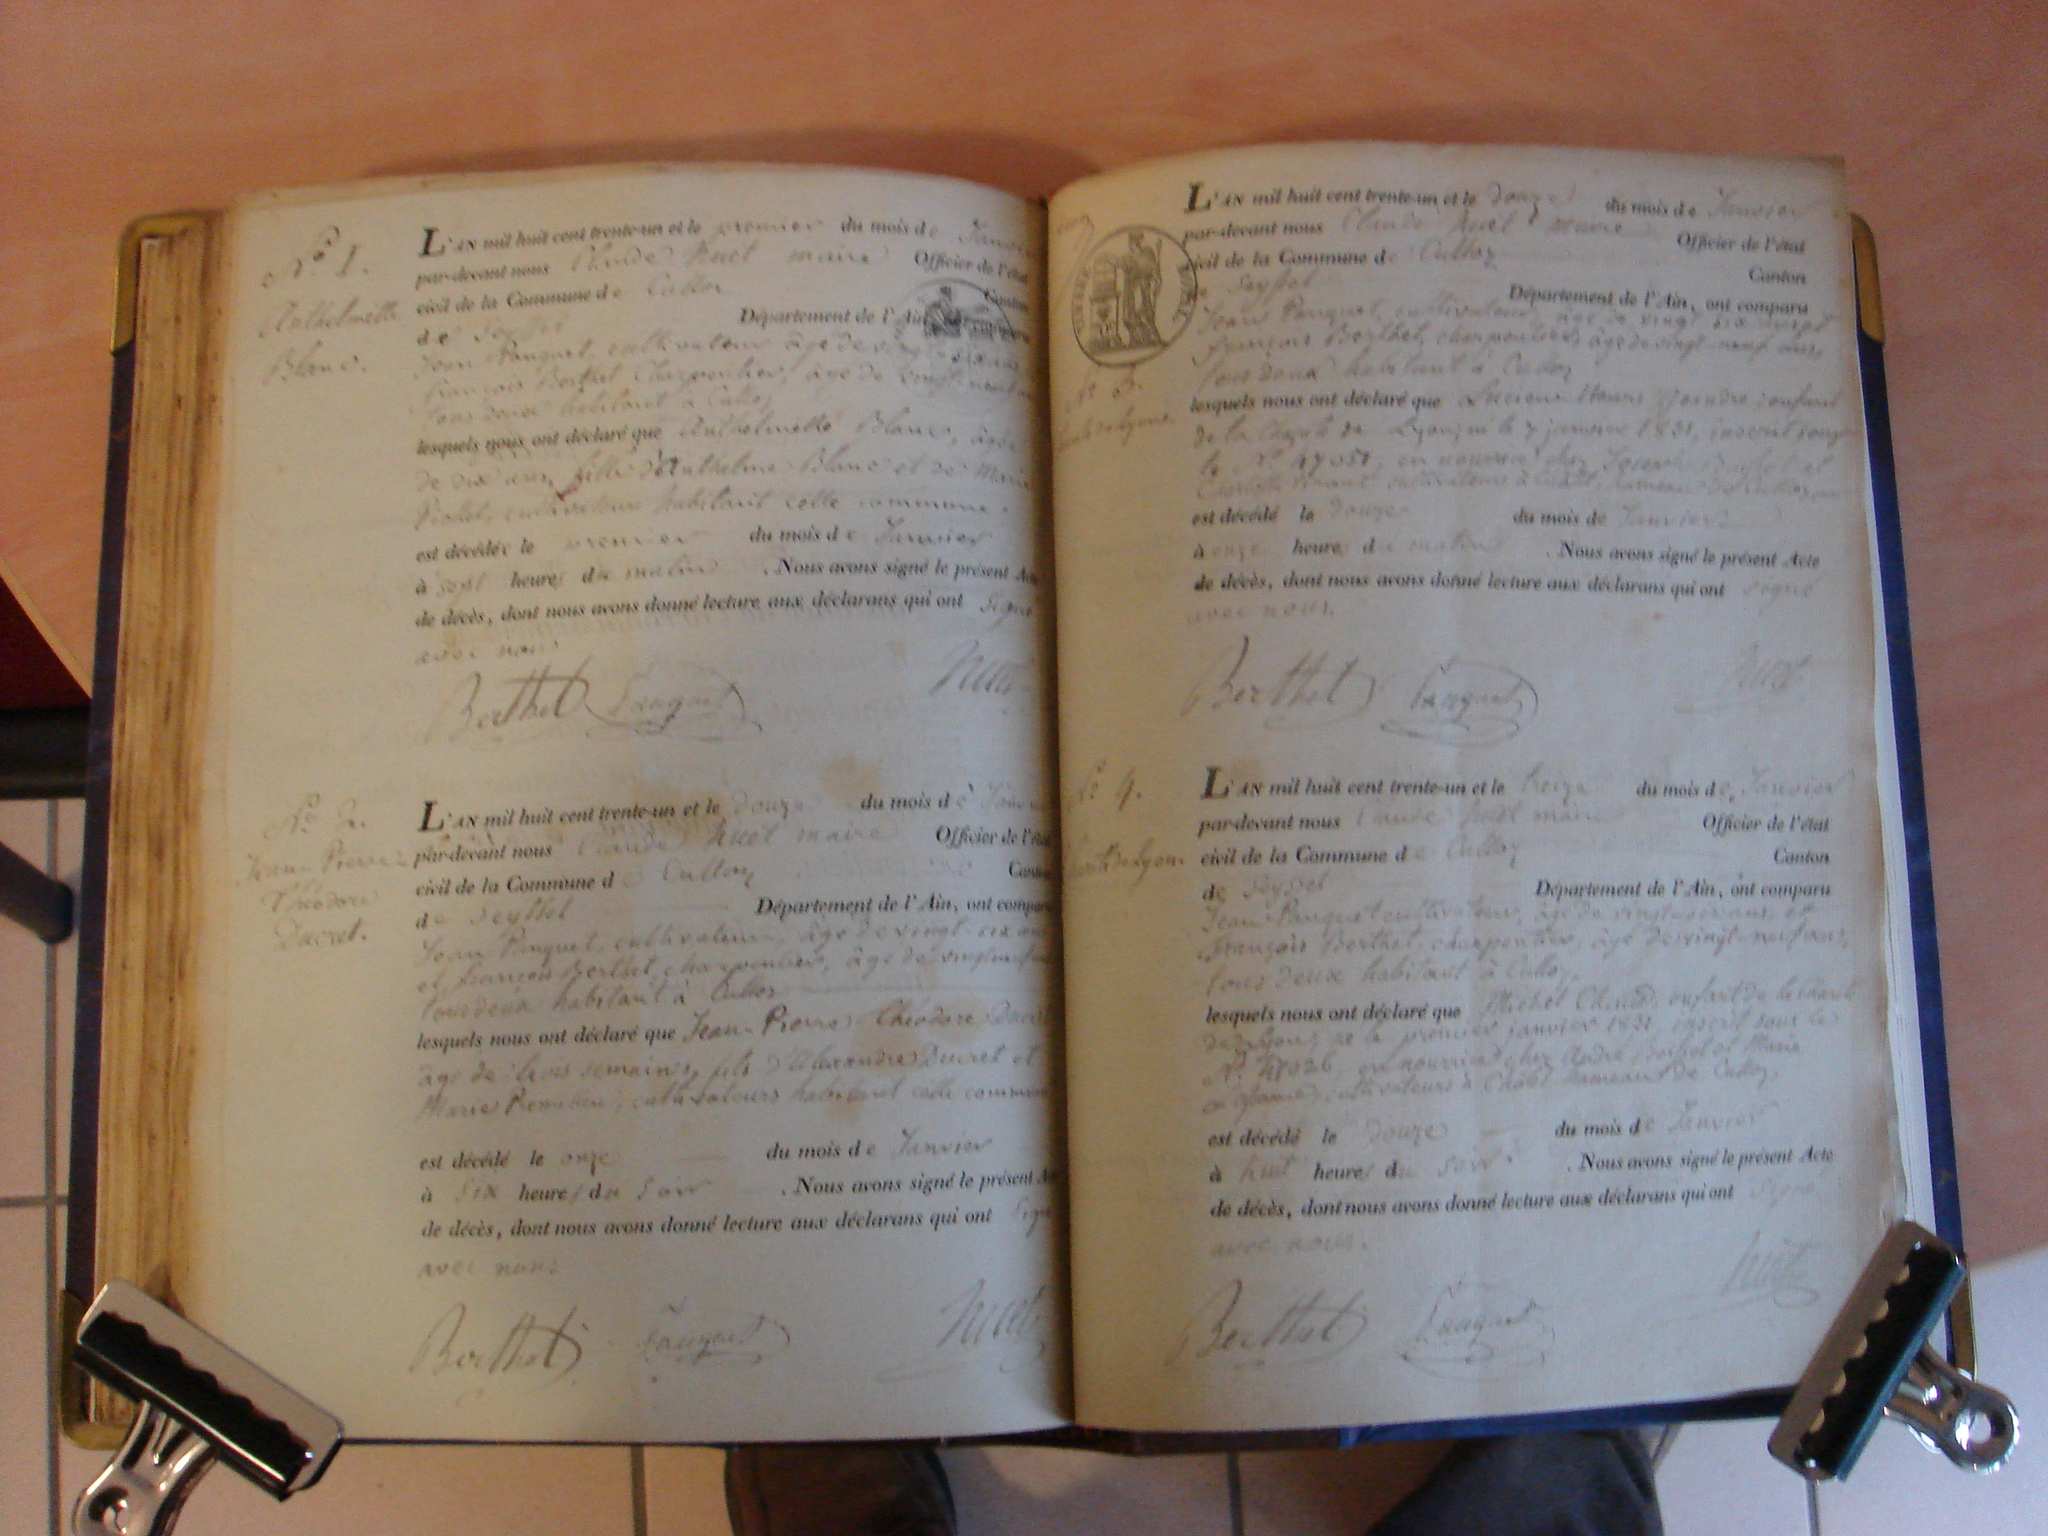 N.º 1.
Anthelmette
Blanc.
L'AN mil huit cent trente-un et le premier du mois de Janvier
par-devant nous Claude Huet maire Officier de l'état
civil de la Commune de Culloz Canton
de Seyssel Département de l'Ain
Jean Pauquet, cultivateur âgé de vingt six ans
françois Berthet Charpentier, âgé de vingt-neuf
tous deux habitant à Culloz
lesquels nous ont déclaré que Anthelmette Blanc, âgée
de dix ans, fille d'Anthelme Blanc et de Marie
cultivateurs habitant cette commune
est décédée le premier du mois de Janvier
à sept heures du matin . Nous avons signé le présent Acte
de décès, dont nous avons donné lecture aux déclarans qui ont signé
avec nous
Berthet Pauquet Huet
N.º 2.
Jean-Pierre
Théodore
Ducret.
L'AN mil huit cent trente-un et le douze du mois de Janvier
par-devant nous Claude Huet maire Officier de l'état
civil de la Commune de Culloz Canton
de Seyssel Département de l'Ain, ont comparu
Jean Pauquet, cultivateur, âgé de vingt-six ans
et françois Berthet, charpentier, âgé de vingt neuf
tous deux habitant à Culloz
lesquels nous ont déclaré que Jean-Pierre Théodore Ducret
âgé de trois semaines, fils d'Alexandre Ducret et
Marie cultivateurs habitant cette commune
est décédé le onze du mois de Janvier
à six heures du soir . Nous avons signé le présent Acte
de décès, dont nous avons donné lecture aux déclarans qui ont signé
avec nous
Berthet Pauquet Huet
L'AN mil huit cent trente-un et le douze du mois de Janvier
par-devant nous Claude Huet maire Officier de l'état
civil de la Commune de Culloz Canton
de Seyssel Département de l'Ain, ont comparu
Jean Pauquet, cultivateur, âgé de vingt six ans et
françois Berthet, charpentier, âgé de vingt-neuf ans,
tous deux habitant à Culloz
N.º 3.
Charité de Lyon.
lesquels nous ont déclaré que Lucien Henri enfant
de la Charité de Lyon, né le 7 janvier 1831, inscrit sous
le N.º 47051, en nourrice chez Joseph et
cultivateurs à hameau de Culloz
est décédé le douze du mois de Janvier
à onze heures du matin . Nous avons signé le présent Acte
de décès, dont nous avons donné lecture aux déclarans qui ont signé
avec nous.
Berthet Pauquet Huet
N.º 4.
Charité de Lyon.
L'AN mil huit cent trente-un et le treize du mois de Janvier
par-devant nous Claude Huet maire Officier de l'état
civil de la Commune de Culloz Canton
de Seyssel Département de l'Ain, ont comparu
Jean Pauquet cultivateur, âgé de vingt-six ans, et
François Berthet, charpentier, âgé de vingt-neuf ans,
tous deux habitant à Culloz,
lesquels nous ont déclaré que Michel Claude, enfant de la charité
de Lyon, né le premier janvier 1831, inscrit sous le
N.º 47026, en nourrice chez André et Marie
cultivateurs à hameau de Culloz,
est décédé le douze du mois de Janvier
à huit heures du soir . Nous avons signé le présent Acte
de décès, dont nous avons donné lecture aux déclarans qui ont signé
avec nous.
Berthet Pauquet Huet